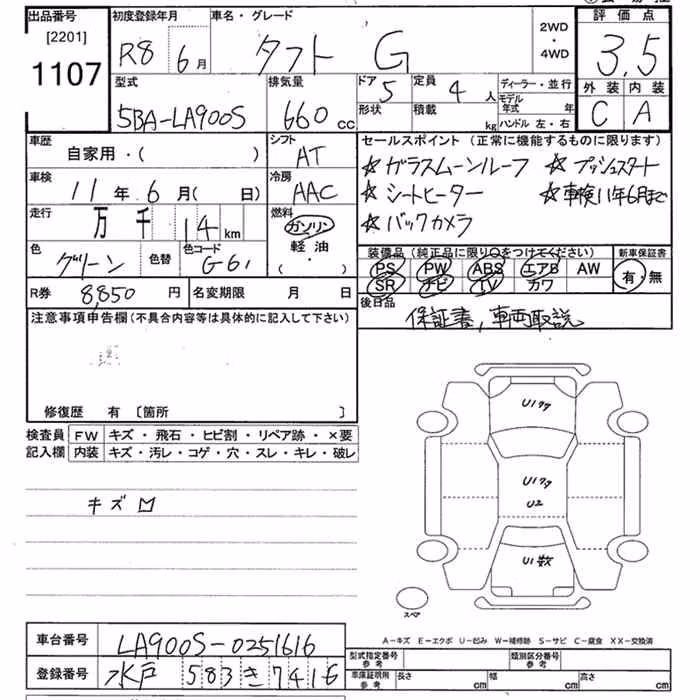 出品番号 初度登録年月 車名・グレード 評価点
[2201] R8 6月 タフト G 2WD・4WD 3.5
1107
型式 排気量 ドア 5 定員 4人 ディーラー・並行 外装 内装
5BA-LA900S 660cc 形状 積載 kg モデル年式 年 C A
ハンドル 左・右
車歴 シフト セールスポイント (正常に機能するものに限ります)
自家用・( ) AT ☆ガラスムーンルーフ ☆プッシュスタート
車検 冷房 ☆シートヒーター ☆車検11年6月まで
11年 6月( 日) AAC ☆バックカメラ
走行 万 千 14 km 燃料 ガソリン 軽油 ( ・ )
色 グリーン 色替 色コード G61
装備品 (純正品に限り○をつけてください) 新車保証書
PS PW ABS エアB AW 有・無
SR ナビ TV カワ
R券 8,850円 名変期限 月 日 後日品
保証書、車両取説
注意事項申告欄 (不具合内容等は具体的に記入して下さい)
修復歴 有 〔箇所 〕
検査員 FW キズ・飛石・ヒビ割・リペア跡・×要
記入欄 内装 キズ・汚レ・コゲ・穴・スレ・キレ・破レ
キズ
U1
U1
U2
U1数
スペア
A-キズ E-エクボ U-凹み W-補修跡 S-サビ C-腐食 XX-交換済
車台番号 LA900S-0251616
型式指定番号 参考 類別区分番号 参考
登録番号 水戸 583 き 7416
車庫証明用 参考 長さ cm 幅 cm 高さ cm